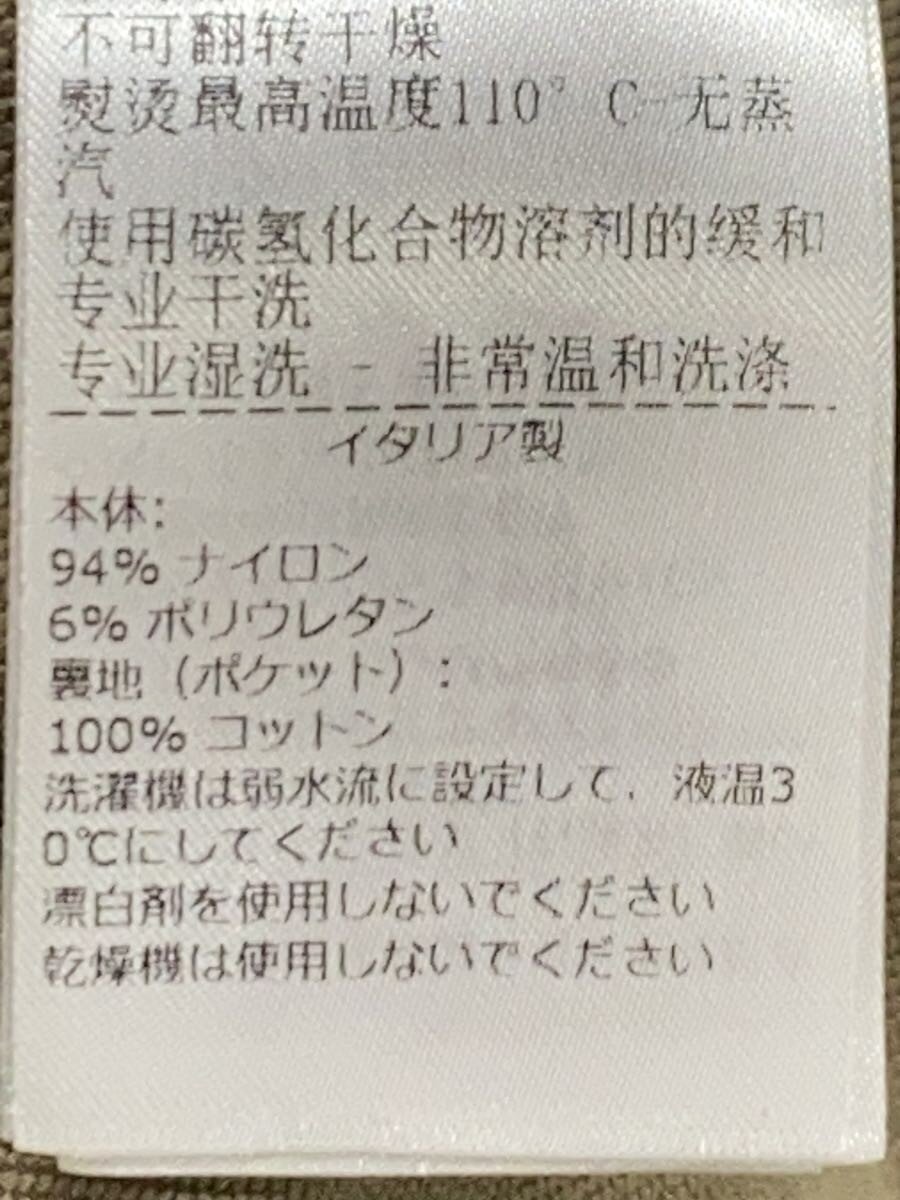 不可翻转干燥
熨烫最高温度110°C-无蒸
汽
使用碳氢化合物溶剂的缓和
专业干洗
专业湿洗 - 非常温和洗涤
イタリア製
本体:
94% ナイロン
6% ポリウレタン
裏地（ポケット）:
100% コットン
洗濯機は弱水流に設定して、液温3
0℃にしてください
漂白剤を使用しないでください
乾燥機は使用しないでください